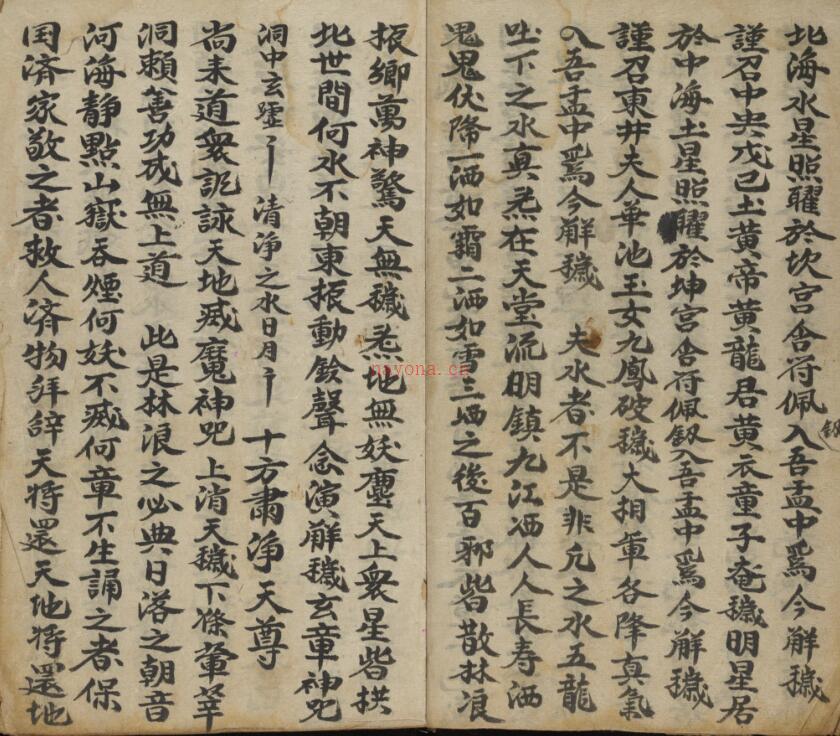 北海水星照耀於坎宮含符佩入吾盂中爲今解穢
釰
謹召中央戊己土黃帝黃龍君黃衣童子奄穢明星居
於中海土星照耀於坤宮含符佩釼入吾盂中爲今解穢
謹召東井夫人華池玉女九鳳破穢大相軍各降真氣
入吾盂中爲今解穢 夫水者不是非凢之水五龍
吐下之水真炁在天堂流明鎮九江洒人人長寿洒
鬼鬼伏降一洒如霜二洒如雪三洒之後百邪皆散林浪
振鄉萬神驚天無穢炁地無妖塵天上衆星皆拱
北世間何水不朝東振動鈴聲念演解穢玄章神咒
洞中玄 清淨之水日月 十方肅淨天尊
尚来道衆詠天地威魔神咒上消天穢下滌葷
洞賴善功成無上道 此是林浪之必典日落之朝音
河海静點山嶽吞煙何妖不滅何章不生誦之者保
国済家敬之者救人済物拜辞天將還天地將還地
nayona.ca